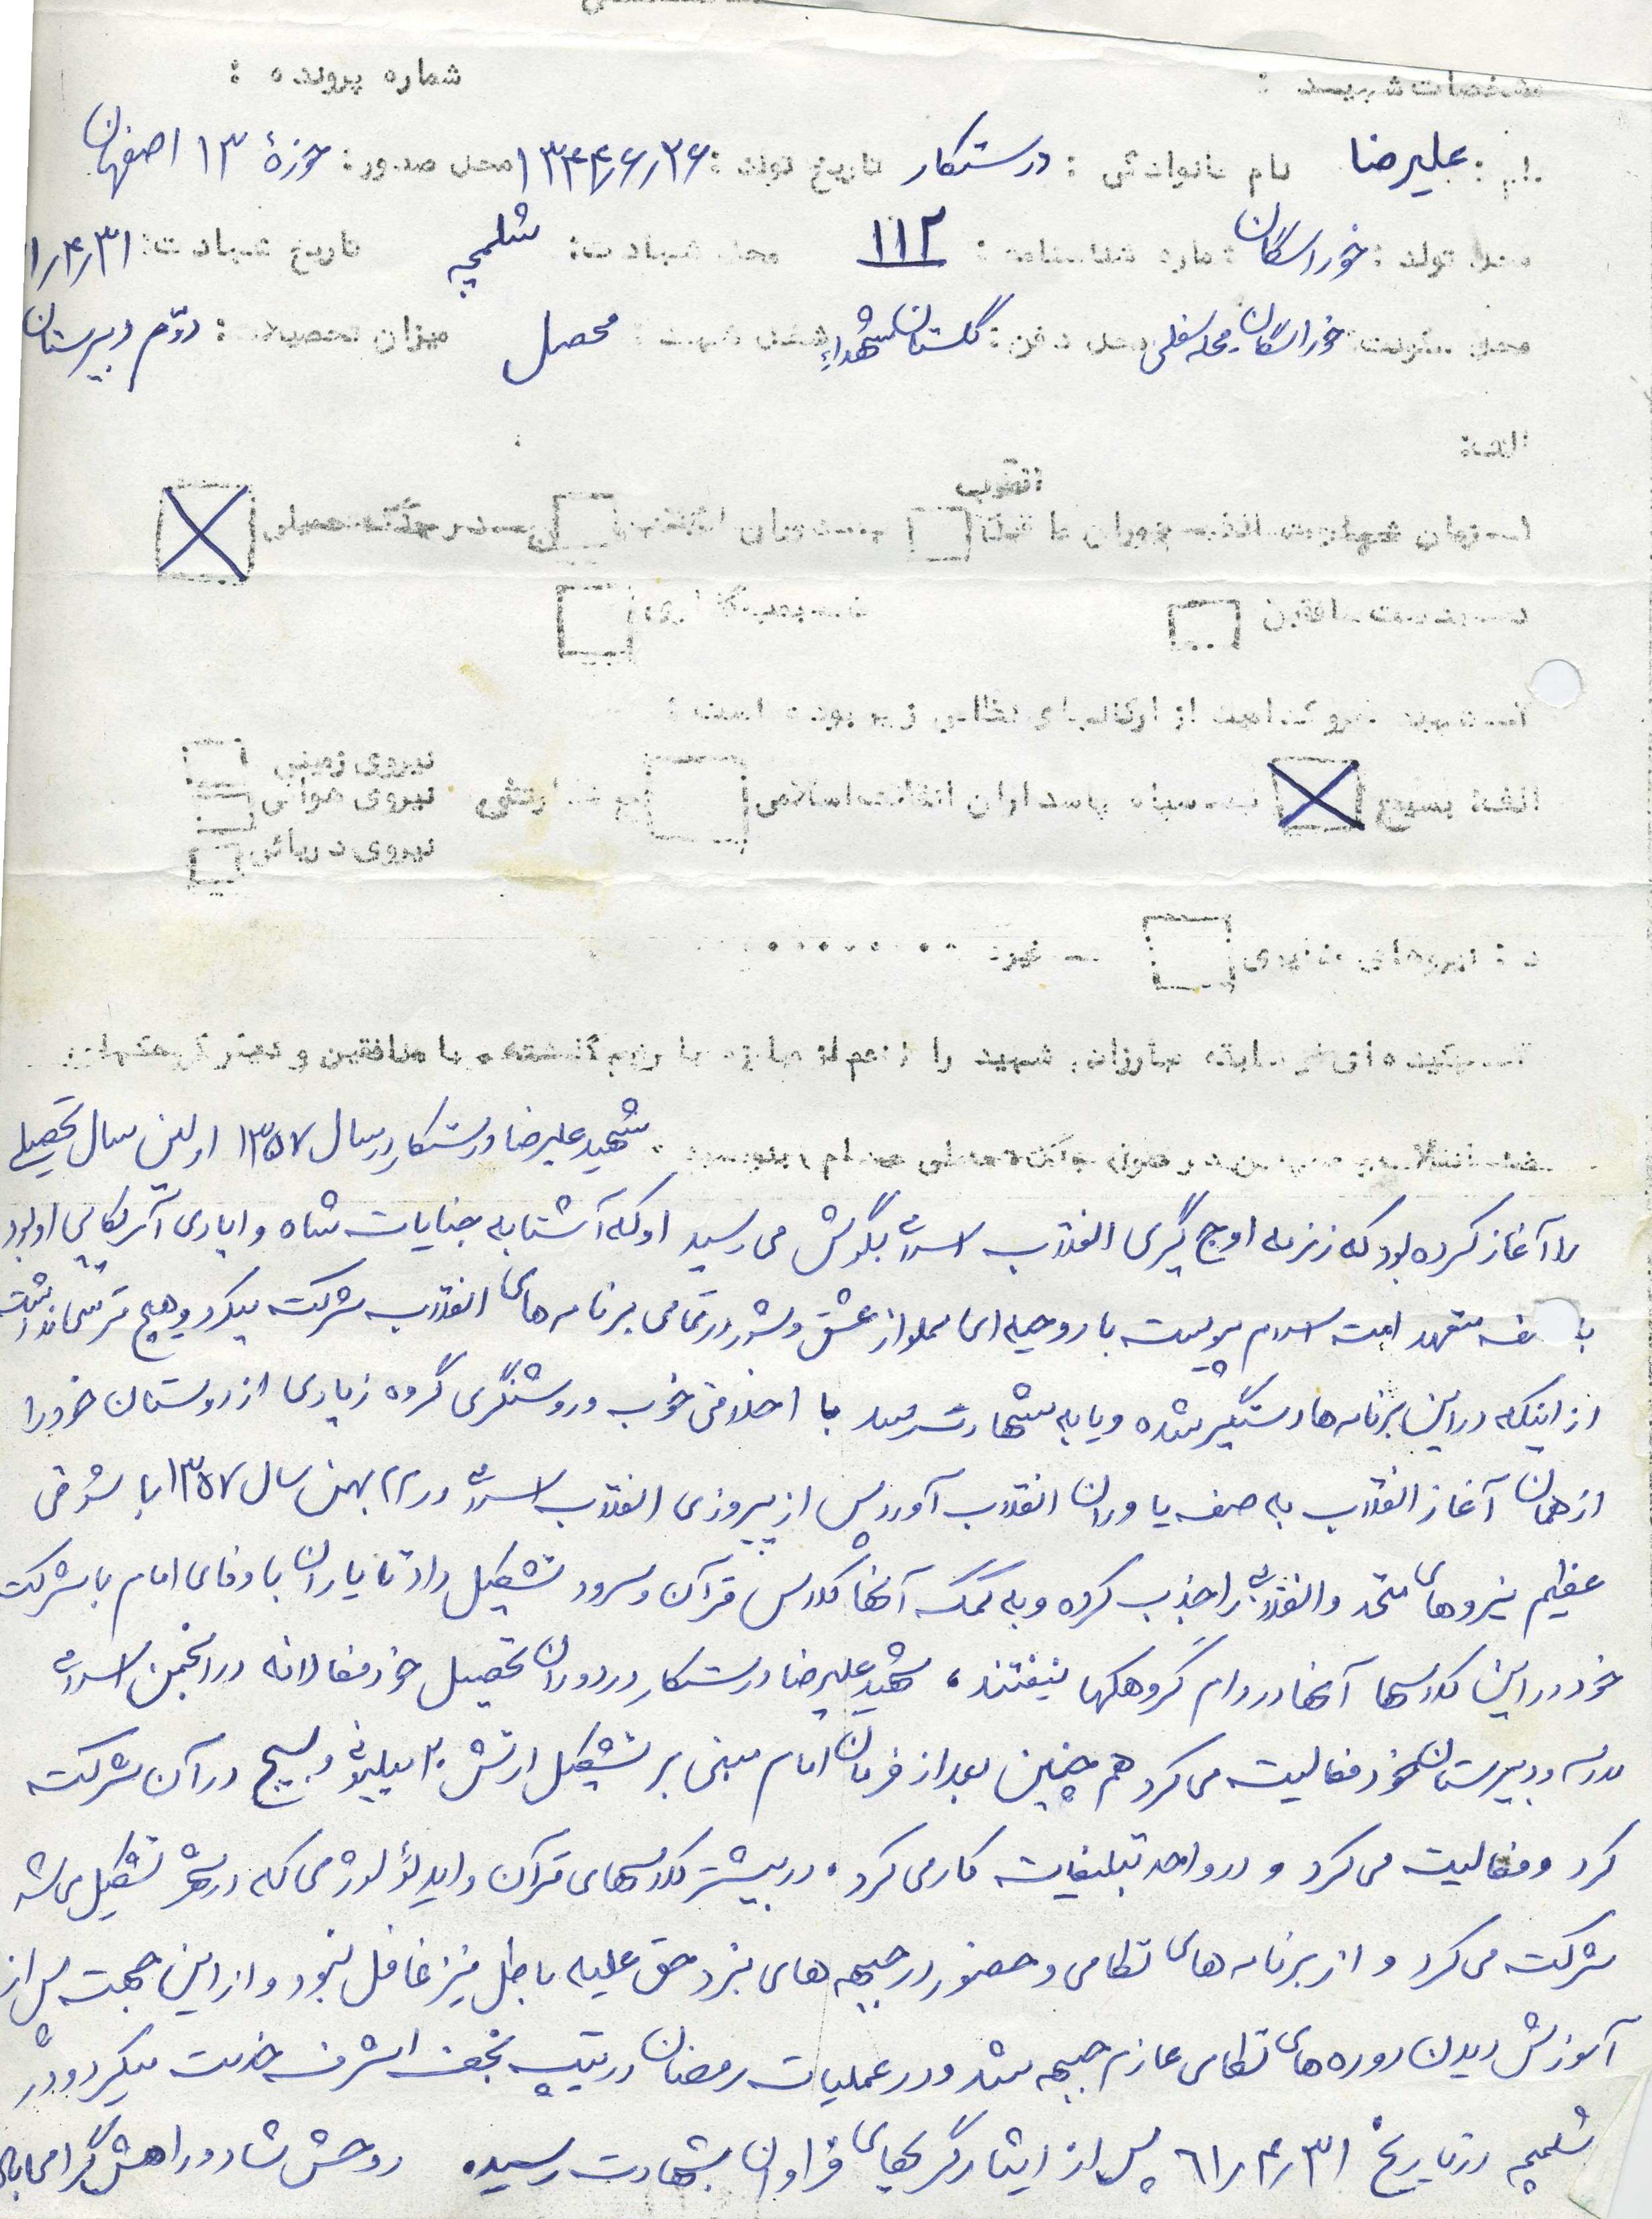 مشخصات شهید : شماره پرونده :
نام : علیرضا نام خانوادگی : درستکار تاریخ تولد : ۱۳۴۴/۶/۲۶ محل صدور : حوزهٔ ۱۳ اصفهان
محل تولد : خوراسگان شماره شناسنامه : ۱۱۲ محل شهادت : شلمچه تاریخ شهادت : ۱/۴/۳۱
محل سکونت : خوراسگان محله سفلی محل دفن : گلستان شهداء شغل شهید : محصل میزان تحصیلات : دوّم دبیرستان
الف :
انقلاب
۱ـ زمان شهادت الف ـ دوران ما قبل ب ـ دوران انقلاب ج ـ در جنگ تحمیلی
د ـ بدست منافقین بمب گذاری
شهید عضو کدامیک از ارگانهای نظامی زیر بوده است :
نیروی زمینی
الف : بسیج ب ـ سپاه پاسداران انقلاب اسلامی ج ـ ارتش نیروی هوائی
نیروی دریائی
د : نیروهای غیره ..........
چکیده ای از سابقه مبارزاتی شهید را اعم از مبارزه با رژیم گذشته و یا منافقین و دیگر گروههای
ضد انقلاب و همچنین در طول جنگ تحمیلی صدام بنویسید . شهید علیرضا درستکار در سال ۱۳۵۷ اولین سال تحصیلی
را آغاز کرده بود که زمزمه اوج گیری انقلاب اسلامی بگوش می رسید او که آشنا به جنایات شاه و ایادی آمریکایی او بود
متعهد امت اسلام پیوست با روحیه ای مملو از عشق و شور در تمامی برنامه های انقلاب شرکت میکرد و هیچ ترسی نداشت
از اینکه در این برنامه ها دستگیر شده و یا به شهادت رسد با اخلاقی خوب و روشنگری گروه زیادی از دوستان خود را
از همان آغاز انقلاب به صف یاوران انقلاب آورد پس از پیروزی انقلاب اسلامی در ۲۲ بهمن سال ۱۳۵۷ با شوقی
عظیم نیروهای متحد و انقلابی را جذب کرده و به کمک آنها کلاس قرآن و سرود تشکیل داد تا یاران با وفای امام با شرکت
خود در این کلاسها آنها در دام گروهکها نیفتند ، شهید علیرضا درستکار در دوران تحصیل خود فعالانه در انجمن اسلامی
مدرسه و دبیرستان خود فعالیت می کرد هم چنین بعد از فرمان امام مبنی بر تشکیل ارتش ۲۰ میلیونی و بسیج در آن شرکت
کرد و فعالیت می کرد و در واحد تبلیغات کار می کرد . در بیشتر کلاسهای قرآن و ایدئولوژی که در شهر تشکیل می شد
شرکت می کرد و از برنامه های نظامی و حضور در جبهه های نبرد حق علیه باطل نیز غافل نبود و از این جهت پس از
آموزش دیدن دوره های نظامی عازم جبهه شد و در عملیات رمضان در تیپ نجف اشرف خدمت میکرد و در
شلمچه در تاریخ ۶۱/۴/۳۱ پس از ایثارگریهای فراوان بشهادت رسید . روحش شاد و راهش گرامی باد